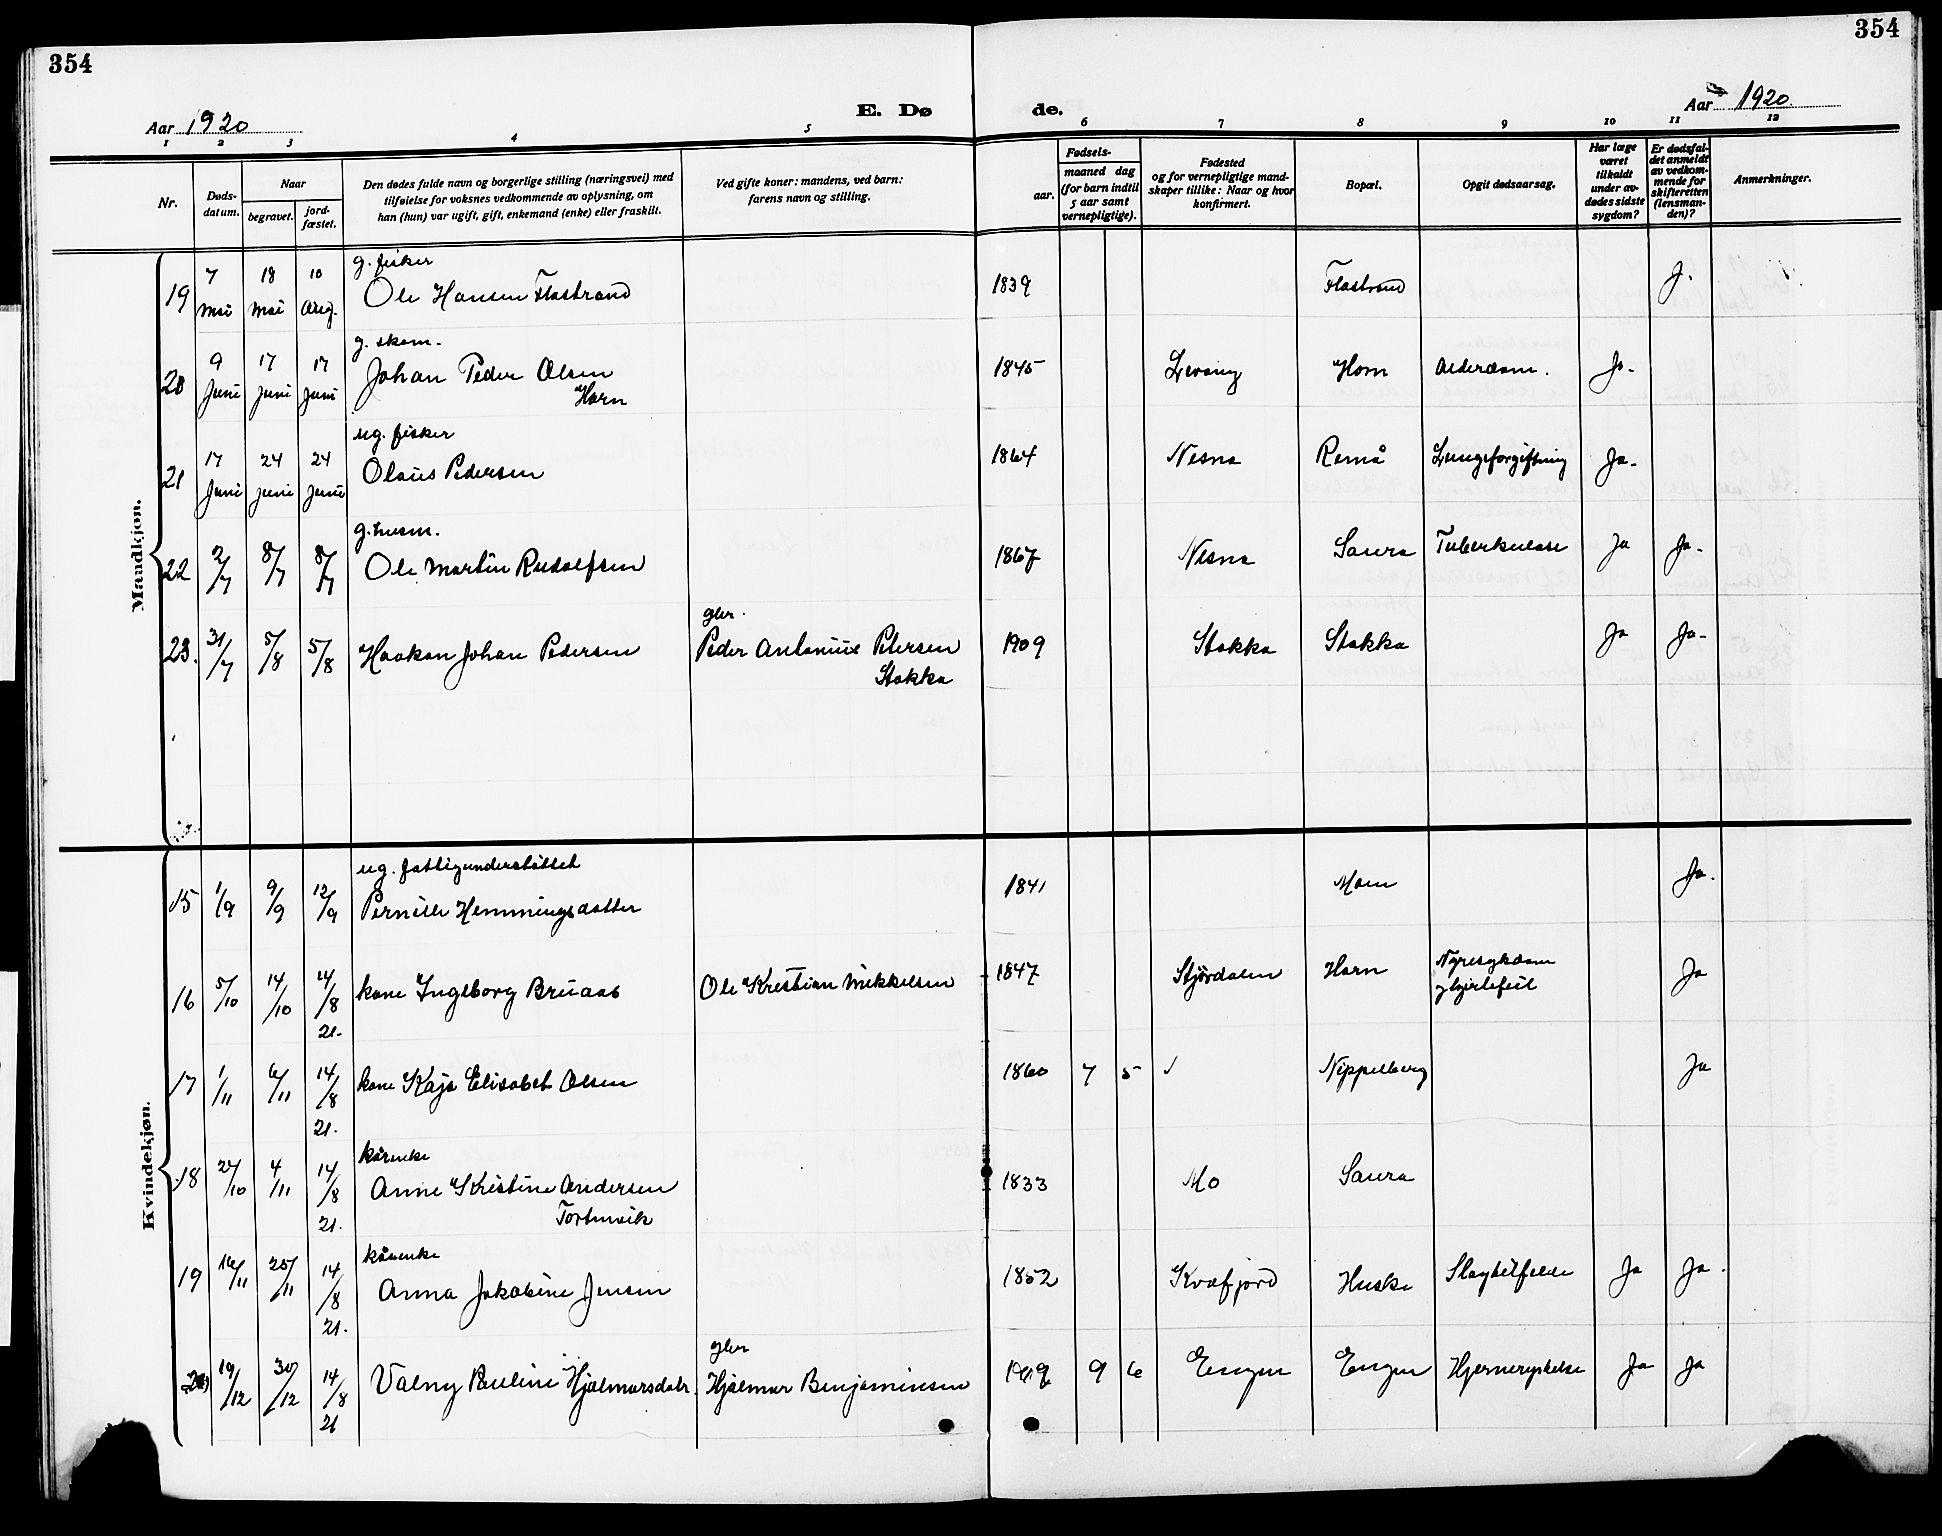 354
354
Aar 1920
E. Dø
de.
Aar 1920.
1 2 3 4 5 6 7 8 9 10 11 12
Nr.
Døds-
datum.
Naar
begravet.
jord-
fæstet.
Den dødes fulde navn og borgerlige stilling (næringsvei) med
tilføielse for voksnes vedkommende av oplysning, om
han (hun) var ugift, gift, enkemand (enke) eller fraskilt.
Ved gifte koner: mandens, ved barn:
farens navn og stilling.
Fødsels-
aar.
maaned dag
(for barn indtil
5 aar samt
vernepligtige).
Fødested
og for vernepligtige mand-
skaper tillike: Naar og hvor
konfirmert.
Bopæl.
Opgit dødsaarsag.
Har læge
været
tilkaldt
under av-
dødes sidste
sygdom?
Er dødsfal-
det anmeldt
av vedkom-
mende for
skifteretten
(lensman-
den)?
Anmerkninger.
Mandkjøn.
g. fisker
19 7 Mai 18 Mai 10 Aug. Ole Hansen Flostrand 1839 Flostrand J.
g. skom.
20 9 Juni 17 Juni 17 Juni Johan Peder Olsen 1845 Levang Horn Alderdom. Ja.
Horn
ug. fisker
21 17 Juni 24 Juni 24 Juni Olaus Pedersen 1864 Nesna Remå Lungeforgiftning Ja.
g. husm.
22 2/7 8/7 8/7 Ole Martin Rudolfsen 1867 Nesna Saura Tuberkulose Ja Ja.
gbr.
23. 31/7 5/8 5/8 Haakon Johan Pedersen Peder Antonius Petersen 1909 Stokka Stokka Ja Ja.
Stokka
Kvindekjøn.
ug. fattigunderstöttet
15 1/9 9/9 12/9 Pernille Hemmingsdatter 1841 Ja.
16 5/10 14/10 14/8 21. kone Ingeborg Bruaas Ole Kristian Mikkelsen 1847 Stjørdalen Horn Nyresykdom
og hjertefeil Ja
17 1/11 6/11 14/8 21. kone Kaja Elisabet Olsen 1860 7 5 Nippelberg Ja
kårenke
18 27/10 4/11 14/8 21. Anne Kristine Andersen 1833 Mo Saura
kårenke
19 16/11 25/11 14/8 21. Anna Jakobine Jensen 1852 Kvæfjord Huske Slagtilfelde Ja Ja.
gbr
20 19/12 30/12 14/8 21 Valny Pauline Hjalmarsdatr. Hjalmar Benjaminsen 9 6 Engen Engen Hjernerystelse Ja Ja